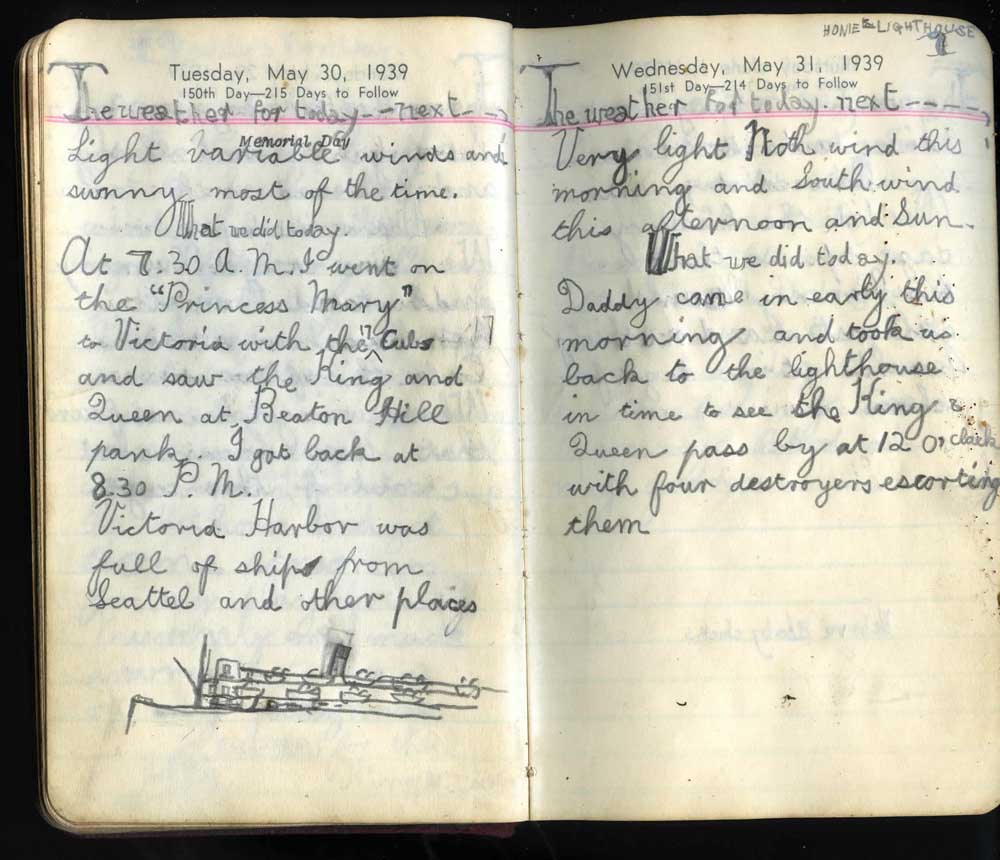 Tuesday, May 30, 1939
150th Day—215 Days to Follow
The weather for today - - next - - -
Memorial Day
Light variable winds and
sunny most of the time.
What we did today.
At 7:30 A.M. I went on
the "Princess Mary"
to Victoria with the "Cubs"
and saw the King and
Queen at Beaton Hill
park. I got back at
8.30 P.M.
Victoria Harbor was
full of ships from
Seattel and other places
HOME & LIGHTHOUSE
Wednesday, May 31, 1939
151st Day—214 Days to Follow
The weather for today. next - - - -
Very light Noth wind this
morning and South wind
this afternoon and Sun.
What we did today.
Daddy came in early this
morning and took us
back to the lighthouse
in time to see the King &
Queen pass by at 12 O, clock
with four destroyers escorting
them